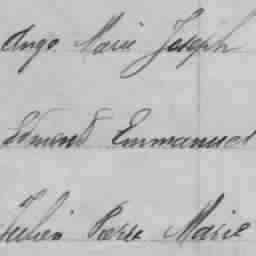 Ange Marie Joseph
Edmond Emmanuel
Julien Pierre Marie